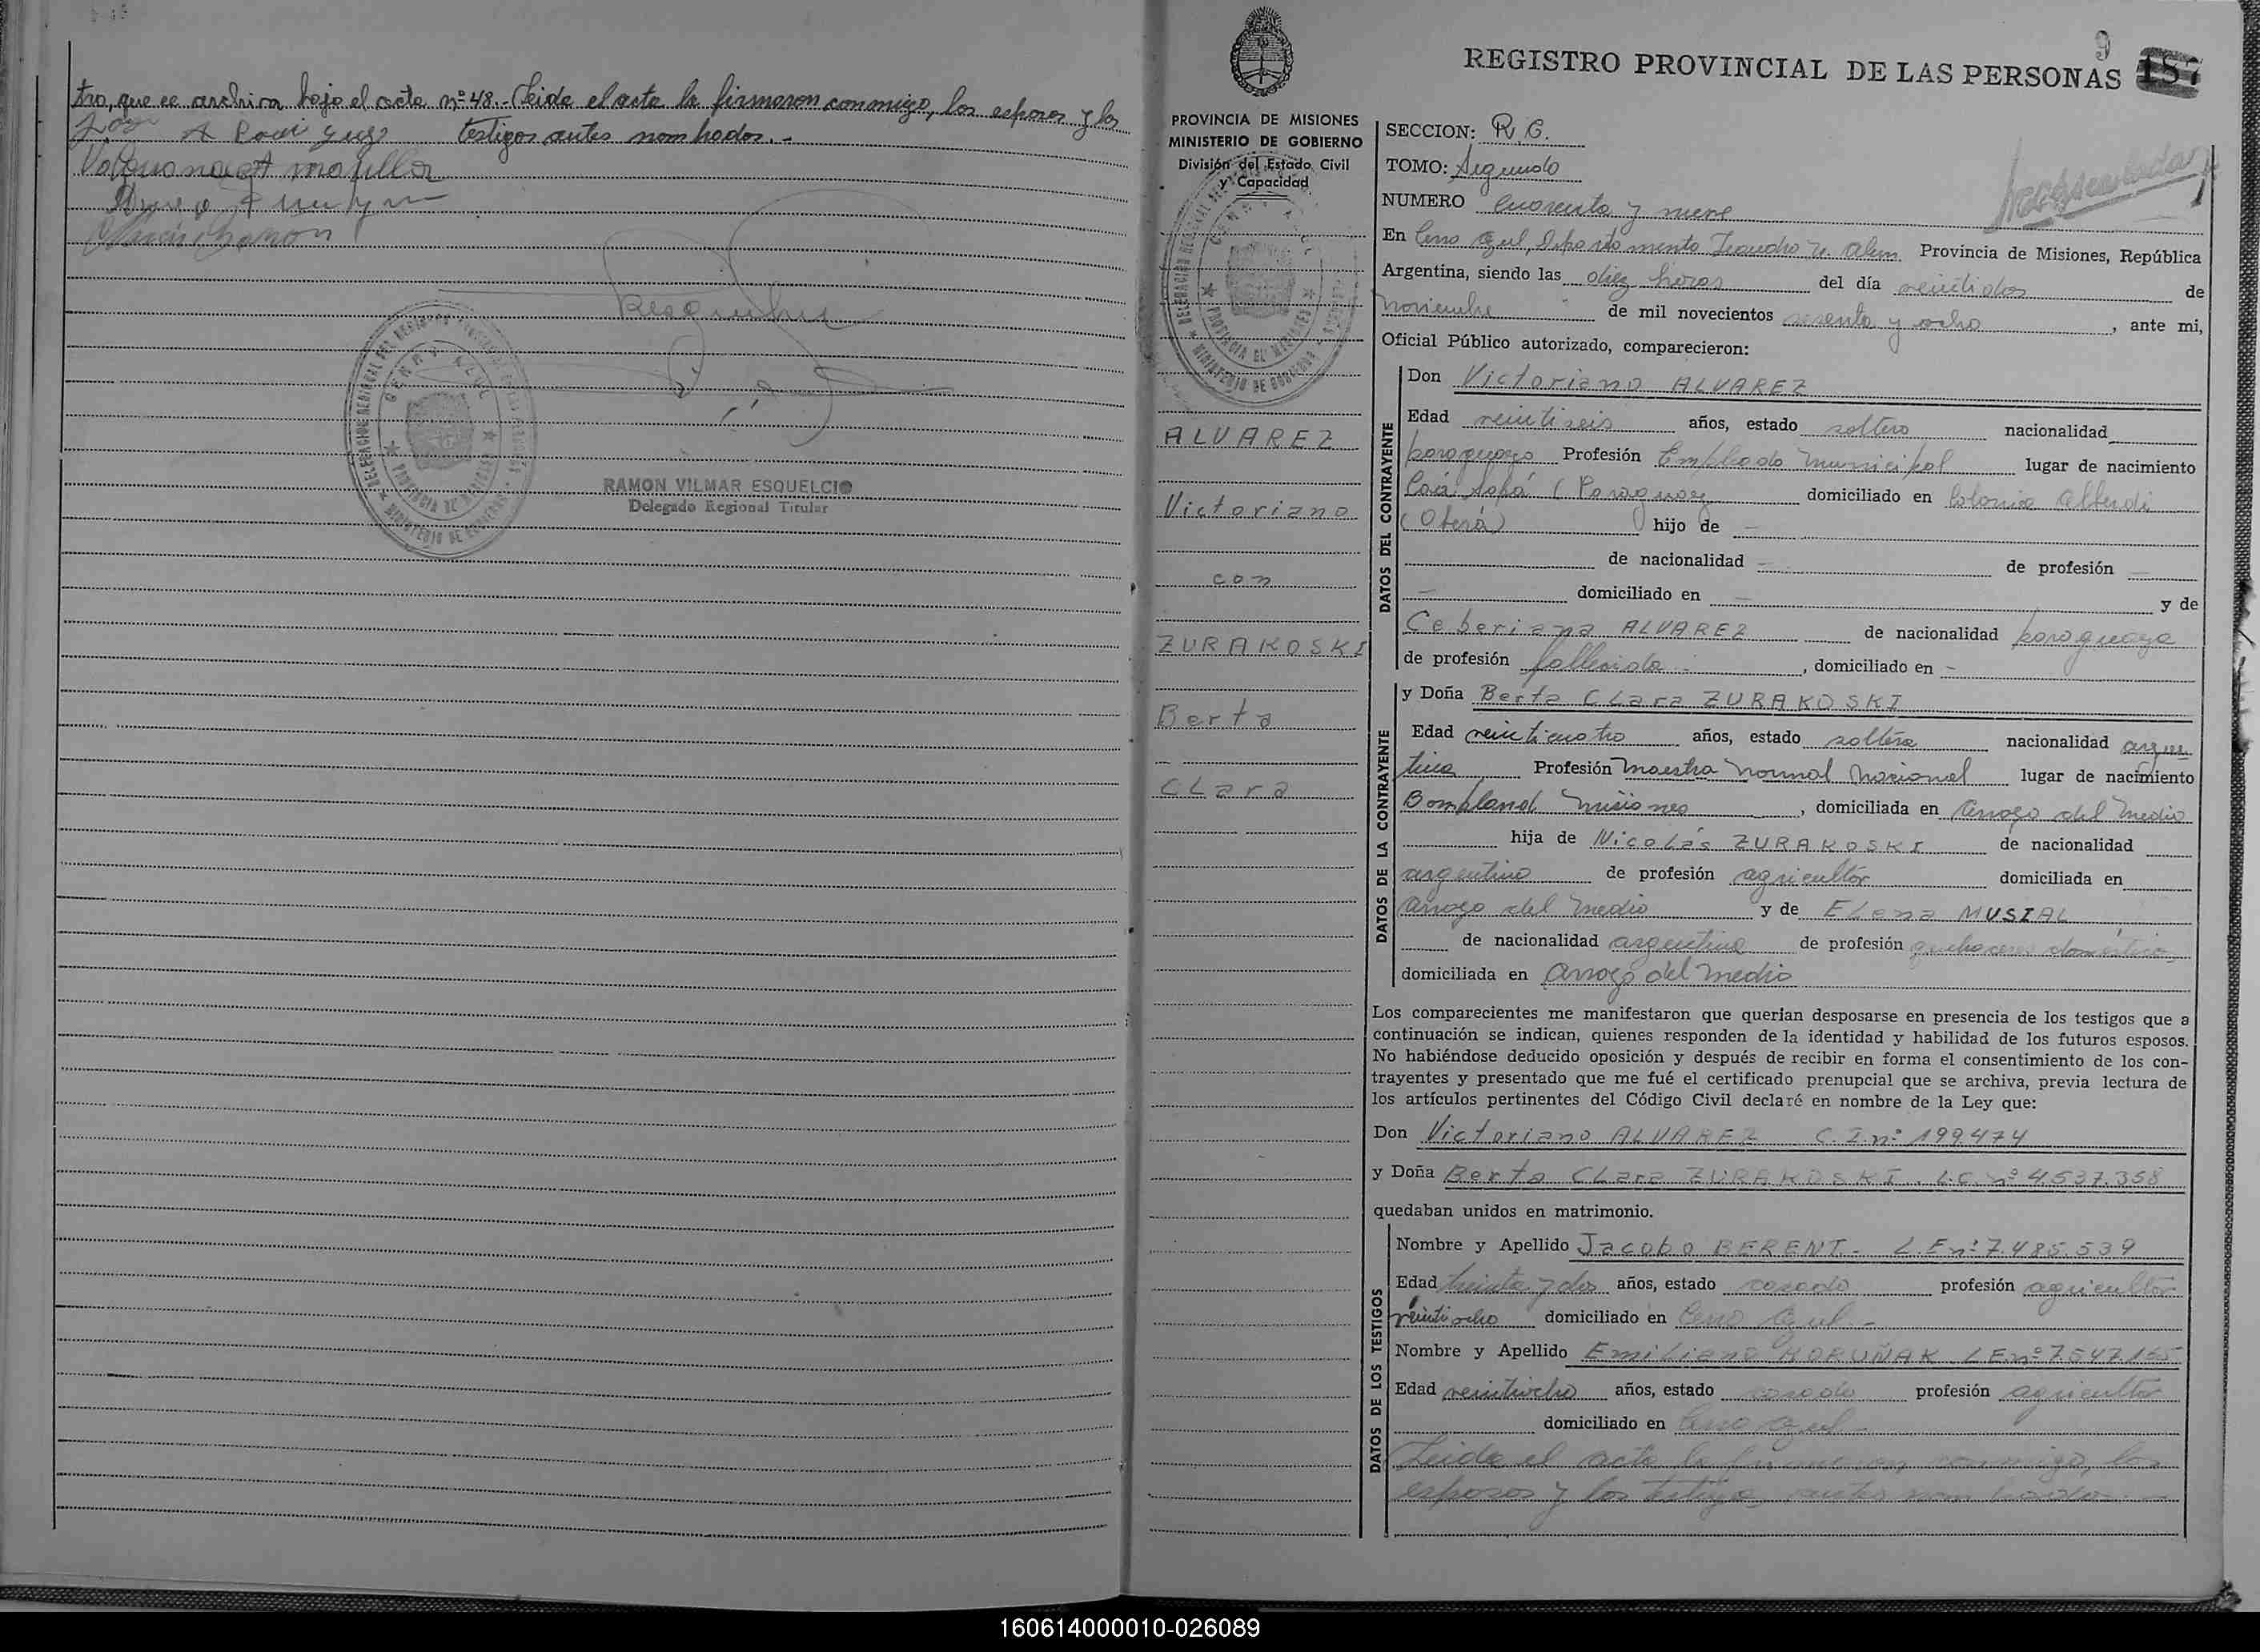 tro, que se archiva bajo el acta nº 48.- Leida el acta la firmaron conmigo, los esposos y los
testigos antes nombrados.-
RAMON VILMAR ESQUELCIO
Delegado Regional Titular
9
REGISTRO PROVINCIAL DE LAS PERSONAS 157
PROVINCIA DE MISIONES
MINISTERIO DE GOBIERNO
División del Estado Civil
y Capacidad
ALVAREZ
Victoriano
con
ZURAKOSKI
Berta
Clara
SECCION: R.C.
TOMO: Segundo
NUMERO Cuarenta y nueve
En Cerro Azul, Departamento Leandro N. Alem Provincia de Misiones, República
Argentina, siendo las diez horas del día veintidos de
noviembre de mil novecientos sesenta y ocho, ante mi,
Oficial Público autorizado, comparecieron:
DATOS DEL CONTRAYENTE
Don Victoriano ALVAREZ
Edad veintiseis años, estado soltero nacionalidad
paraguayo Profesión Empleado Municipal lugar de nacimiento
(Paraguay domiciliado en Colonia Alberdi
(Oberá) hijo de -
de nacionalidad - de profesión -
- domiciliado en - y de
Ceberiana ALVAREZ de nacionalidad paraguaya
de profesión fallecida.-, domiciliado en -
DATOS DE LA CONTRAYENTE
y Doña Berta Clara ZURAKOSKI
Edad veinticuatro años, estado soltera nacionalidad argen
tina Profesión Maestra Normal Nacional lugar de nacimiento
Bompland Misiones, domiciliada en Arroyo del Medio
hija de Nicolás ZURAKOSKI de nacionalidad
argentino de profesión agricultor domiciliada en
Arroyo del Medio y de Elena MUSIAL
de nacionalidad argentina de profesión quehaceres domésticos
domiciliada en Arroyo del Medio
Los comparecientes me manifestaron que querian desposarse en presencia de los testigos que a
continuación se indican, quienes responden de la identidad y habilidad de los futuros esposos.
No habiéndose deducido oposición y después de recibir en forma el consentimiento de los con-
trayentes y presentado que me fué el certificado prenupcial que se archiva, previa lectura de
los artículos pertinentes del Código Civil declaré en nombre de la Ley que:
Don Victoriano ALVAREZ C.I.nº 199474
y Doña Berta Clara ZURAKOSKI. L.C. nº 4.537.358
quedaban unidos en matrimonio.
DATOS DE LOS TESTIGOS
Nombre y Apellido Jacobo BERENT.- L.E nº 7.485.539
Edad treinta y dos años, estado casado profesión agricultor
veintiocho domiciliado en Cerro Azul -
Nombre y Apellido Emiliano HORUÑAK L.E.nº 7.547.155
Edad veintiocho años, estado casado profesión agricultor
domiciliado en Cerro Azul -
Leida el acta la firmaron conmigo, los
esposos y los testigos antes nombrados.-
160614000010-026089